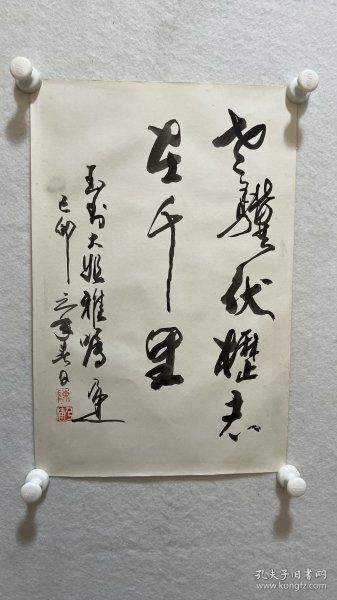 老骥伏枥志
在千里
玉南大姐雅嘱
己卯之年春日
孔夫子旧书网
www.kongfz.com